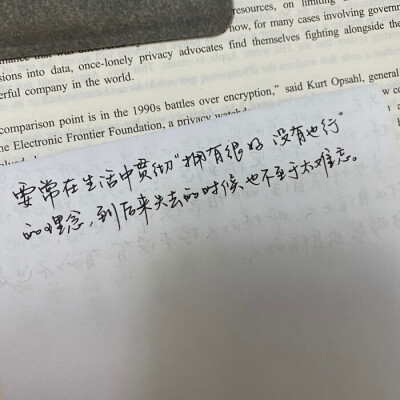 resources, on limiting
now, for many cases involving governm
sions into data, once-lonely privacy advocates find themselves fighting alongside the
erful company in the world.
comparison point is in the 1990s battles over encryption,” said Kurt Opsahl, general
he Electronic Frontier Foundation, a privacy
要常在生活中贯彻“拥有很好 没有也行”
的理念，到后来失去的时候、也不至于太难忘。